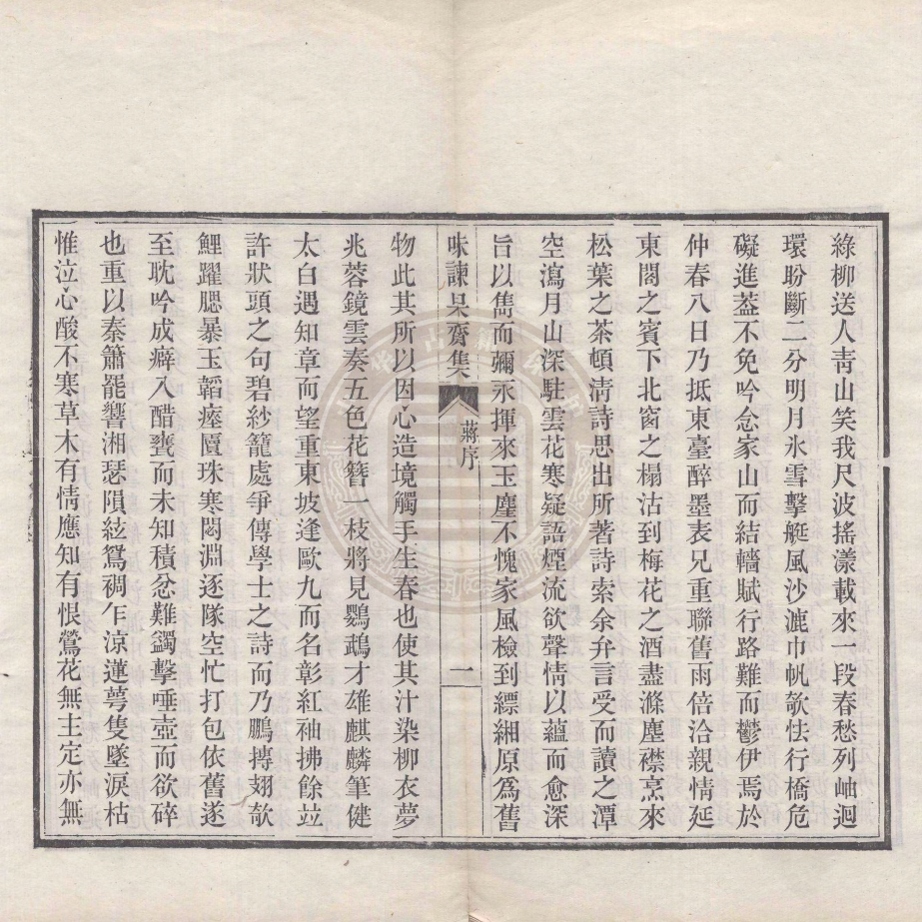 綠柳送人靑山笑我尺波搖漾載來一段春愁列岫迴
環盼斷二分明月氷雪擊艇風沙漉巾帆欹怯行橋危
礙進葢不免吟念家山而結轖賦行路難而鬱伊焉於
仲春八日乃抵東臺醉墨表兄重聯舊雨倍洽親情延
東閣之賓下北窗之榻沽到梅花之酒盡滌塵襟烹來
松葉之茶頓淸詩思出所著詩索余弁言受而讀之潭
空瀉月山深駐雲花寒疑語煙流欲聲情以蘊而愈深
旨以雋而彌永揮來玉麈不愧家風檢到縹緗原爲舊
味諫杲齋集
蔣序
一
物此其所以因心造境觸手生春也使其汁染柳衣夢
兆蓉鏡雲奏五色花簪一枝將見鸚鵡才雄麒麟筆健
太白遇知章而望重東坡逢歐九而名彰紅袖拂餘竝
許狀頭之句碧紗籠處爭傳學士之詩而乃鵬摶翅欹
鯉躍腮暴玉韜瘞匵珠寒閟淵逐隊空忙打包依舊遂
至耽吟成癖入醋甕而未知積忿難蠲擊唾壺而欲碎
也重以秦簫罷響湘瑟隕絃鴛裯乍涼蓮萼隻墜淚枯
惟泣心酸不寒草木有情應知有恨鶯花無主定亦無